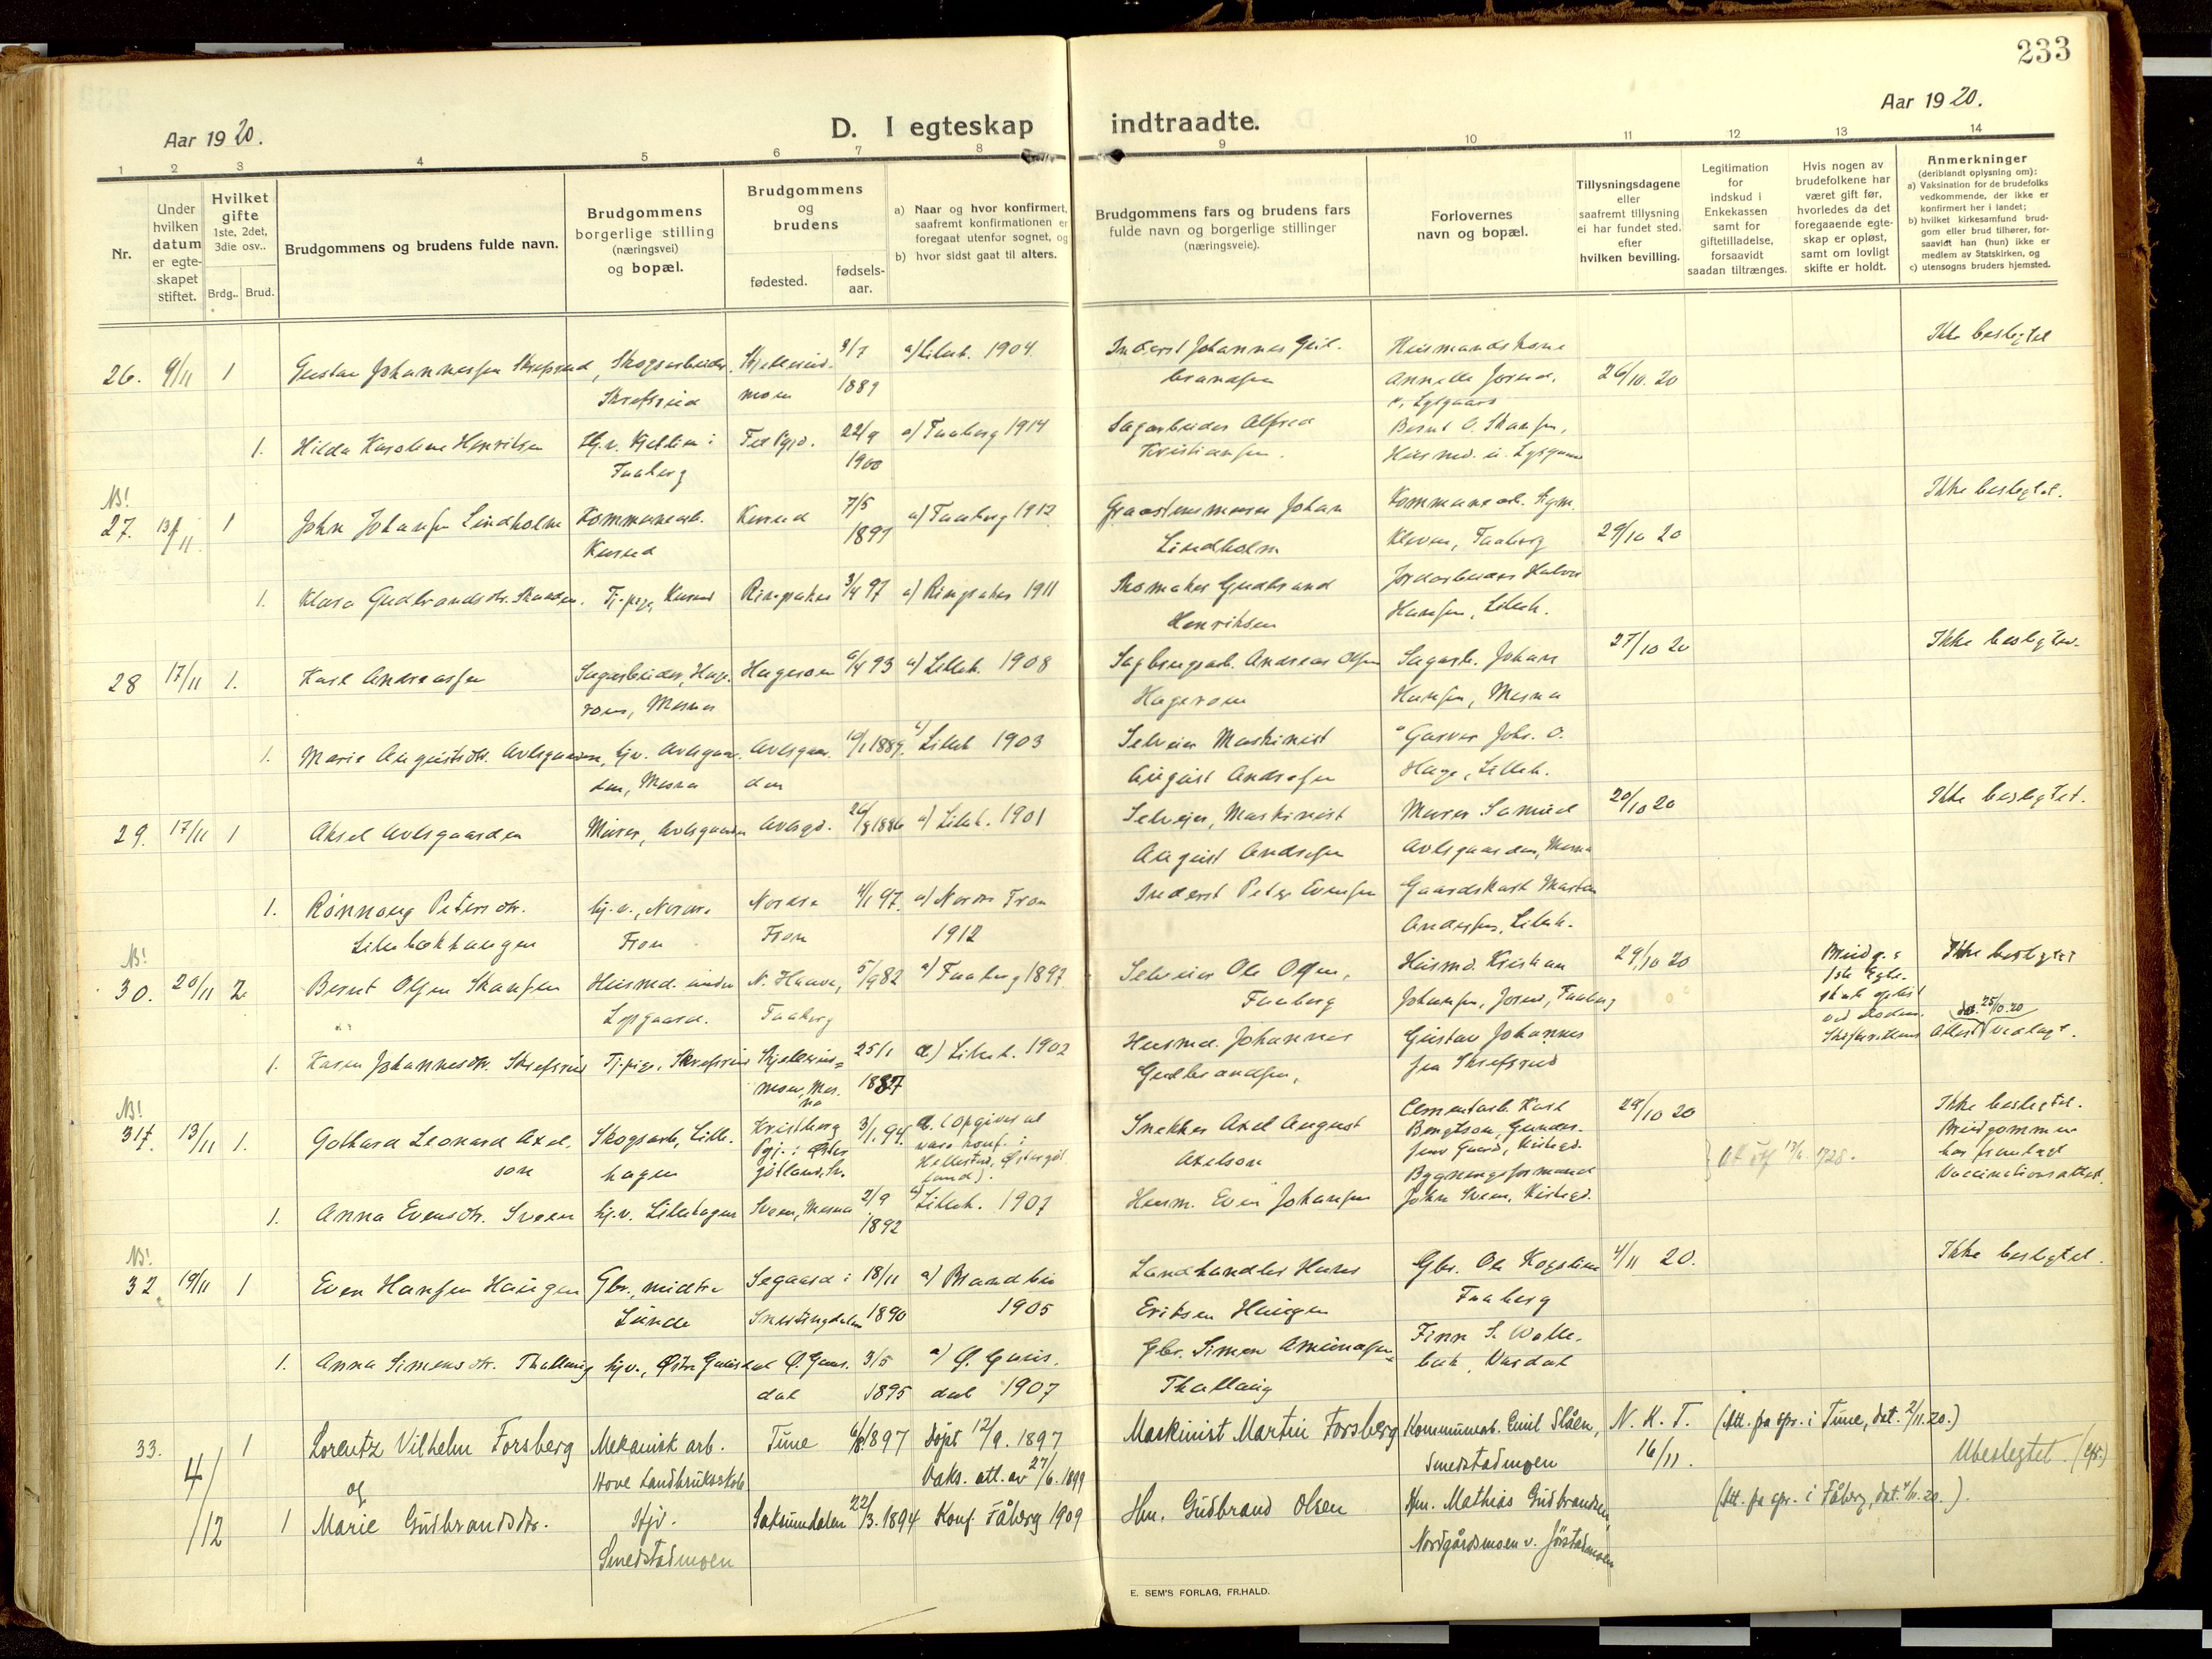 233
Aar 1920.
D. I egteskap indtraadte.
Aar 1920.
1 2 3 4 5 6 7 8 9 10 11 12 13 14
Nr.
Under hvilken datum er egteskapet stiftet.
Hvilket gifte 1ste, 2det, 3die osv..
Brdg.. Brud.
Brudgommens og brudens fulde navn.
Brudgommens borgerlige stilling (næringsvei) og bopæl.
Brudgommens og brudens
fødested.
fødsels-aar.
a) Naar og hvor konfirmert, saafremt konfirmationen er foregaat utenfor sognet, og
b) hvor sidst gaat til alters.
Brudgommens fars og brudens fars fulde navn og borgerlige stillinger (næringsveie).
Forlovernes navn og bopæl.
Tillysningsdagene eller saafremt tillysning ei har fundet sted. efter hvilken bevilling.
Legitimation for indskud i Enkekassen samt for giftetilladelse, forsaavidt saadan tiltrænges.
Hvis nogen av brudefolkene har været gift før, hvorledes da det foregaaende egteskap er opløst, samt om lovligt skifte er holdt.
Anmerkninger (deriblandt oplysning om):
a) Vaksination for de brudefolks vedkommende, der ikke er konfirmert her i landet;
b) hvilket kirkesamfund brudgom eller brud tilhører, forsaavidt han (hun) ikke er medlem av Statskirken, og
c) utensogns bruders hjemsted.
26. 9/11 1 Gustav Johannessen Skrefsrud, Skogsarbeider, 9/7 a) Lilleh. 1904. Inderst Johannes Gud- Husmandskone Ikke beslegtet
Skrefsrud moen 1889 brandsen 26/10. 20
1. Hilda Karoline Henriksen 22/9 a) Faaberg 1914 Sagarbeider Alfred Bernt O. Skansen,
Faaberg 1900 Kristiansen. Husmd. u. Lysgaard
NB!
27. 13/11 1 John Johansen Lindholm Kommunearb. 7/5 a) Faaberg 1912 Johan Kommunearb. Ikke beslegtet.
1897 Lindholm Kleven, Faaberg 29/10 20
1. Klara Gudbrandsdtr. Tj.pige Ringsaker 3/4 97 a) Ringsaker 1911 Skomaker Gudbrand
Henriksen Hansen, Lilleh.
28 17/11 1. Karl Andreassen Sagarbeider, Hage- Hageroen 6/4 93 a) Lilleh. 1908 Sagbrugsarb. Andreas Olsen Sagarb. Johan 27/10 20 Ikke beslegtet.
roen, Mesna Hageroen Hansen, Mesna
1. Marie Augustsdtr. Avlsgaarden, hjv. Avlsgaar- Avlsgaar- 10/1 1889. a) Lilleh 1903 Selveier Maskinist Garver Johs. O.
den, Mesna den August Andersen Hage, Lilleh.
29. 17/11 1 Aksel Avlsgaarden Murer, Avlsgaarden Avlsgd. 26/8 1886 a) Lilleh. 1901 Selveier, Maskinist Murer Samuel 20/10 20 Ikke beslegtet.
August Andersen Avlsgaarden, Mesna
1. Rønnaug Petersdtr. hj.v., Nordre Nordre 4/1 97. a) Nordre Fron Inderst Peter Evensen Gaardskarl Martin
Lillebækhaugen Fron Fron 1912 Andersen, Lilleh.
NB!
30. 20/11 2. Bernt Olsen Skansen Husmd. under N. Haave, 5/9 82 a) Faaberg 1897 Selveier Ole Olsen, Husmd. Kristian 29/10 20 Brudg.s Ikke beslegtet
Lysgaard. Faaberg Faaberg Johansen, Jorud, Faaberg 1ste Egte-
skab opløst
ved døden.
dat. 25/10.20
Attest vedlagt.
1. Karen Johannesdtr. Skrefsrud Tj.pige, Skrefsrud 25/1 a) Lilleh. 1902 Husmd. Johannes Gustav Johannes-
moen, Mes- 1887 Gudbrandsen, sen Skrefsrud
na
NB!
31. 13/11 1. Gothard Leonard Axel- Skogsarb, Lille- Kristberg 3/1 94. a. (Opgives at Snekker Axel August Cementarb. Karl 29/10 20 Ikke beslegtet.
son hagen Pgj. i Øster- være konf. i Axelson Bengtson, Brudgommen
götland, Sv. Hellestad, Östergöt- Bygningsformand har fremlagt
land). John Sveen, Vaccinationsattest.
1. Anna Evensdtr. Sveen hj.v. Lillehagen Sveen, Mesna 2/9 a) Lilleh. 1907 Husm. Even Johansen
1892
NB!
32. 19/11 1 Even Hansen Haugen Gbr., midtre Segaard i 18/11 a) Brandbu Landhandler Hans Gbr. Ole 4/11 20. Ikke beslegtet.
Lunde Snertingdalen 1890 1905 Eriksen Haugen Faaberg
1. Anna Simensdtr. Thallaug hjv., Østre Gausdal Ø. Gaus- 3/5 a) Ø. Gaus- Gbr. Simen Amundsen Finn S. Wolle-
dal 1895 dal 1907 Thallaug bæk, Vardal
33. 4/12 1 Lorentz Vilhelm Forsberg Mekanisk arb. Tune 6/8 1897 Døpt 12/9. 1897 Maskinist Martin Forsberg Kommunearb. Emil Slåen, N. K. T. (Att. fra spr. i Tune, dat. 2/11.20.)
og Hove Landbruksskole Vaks. att. av 27/6. 1899 Smedstadmoen 16/11. Ubeslegtet.
1 Marie Gudbrandsdtr. Hjv. Saksumdalen 22/3. 1894 Konf. Fåberg 1909 Hm. Gudbrand Olsen Hm. Mathias Gudbrandsen, (Att. fra spr. i Fåberg, dat. 4/11.20.).
Smedstadmoen Nordgårdsmoen v. Jörstadmoen
E. SEM'S FORLAG, FR.HALD.